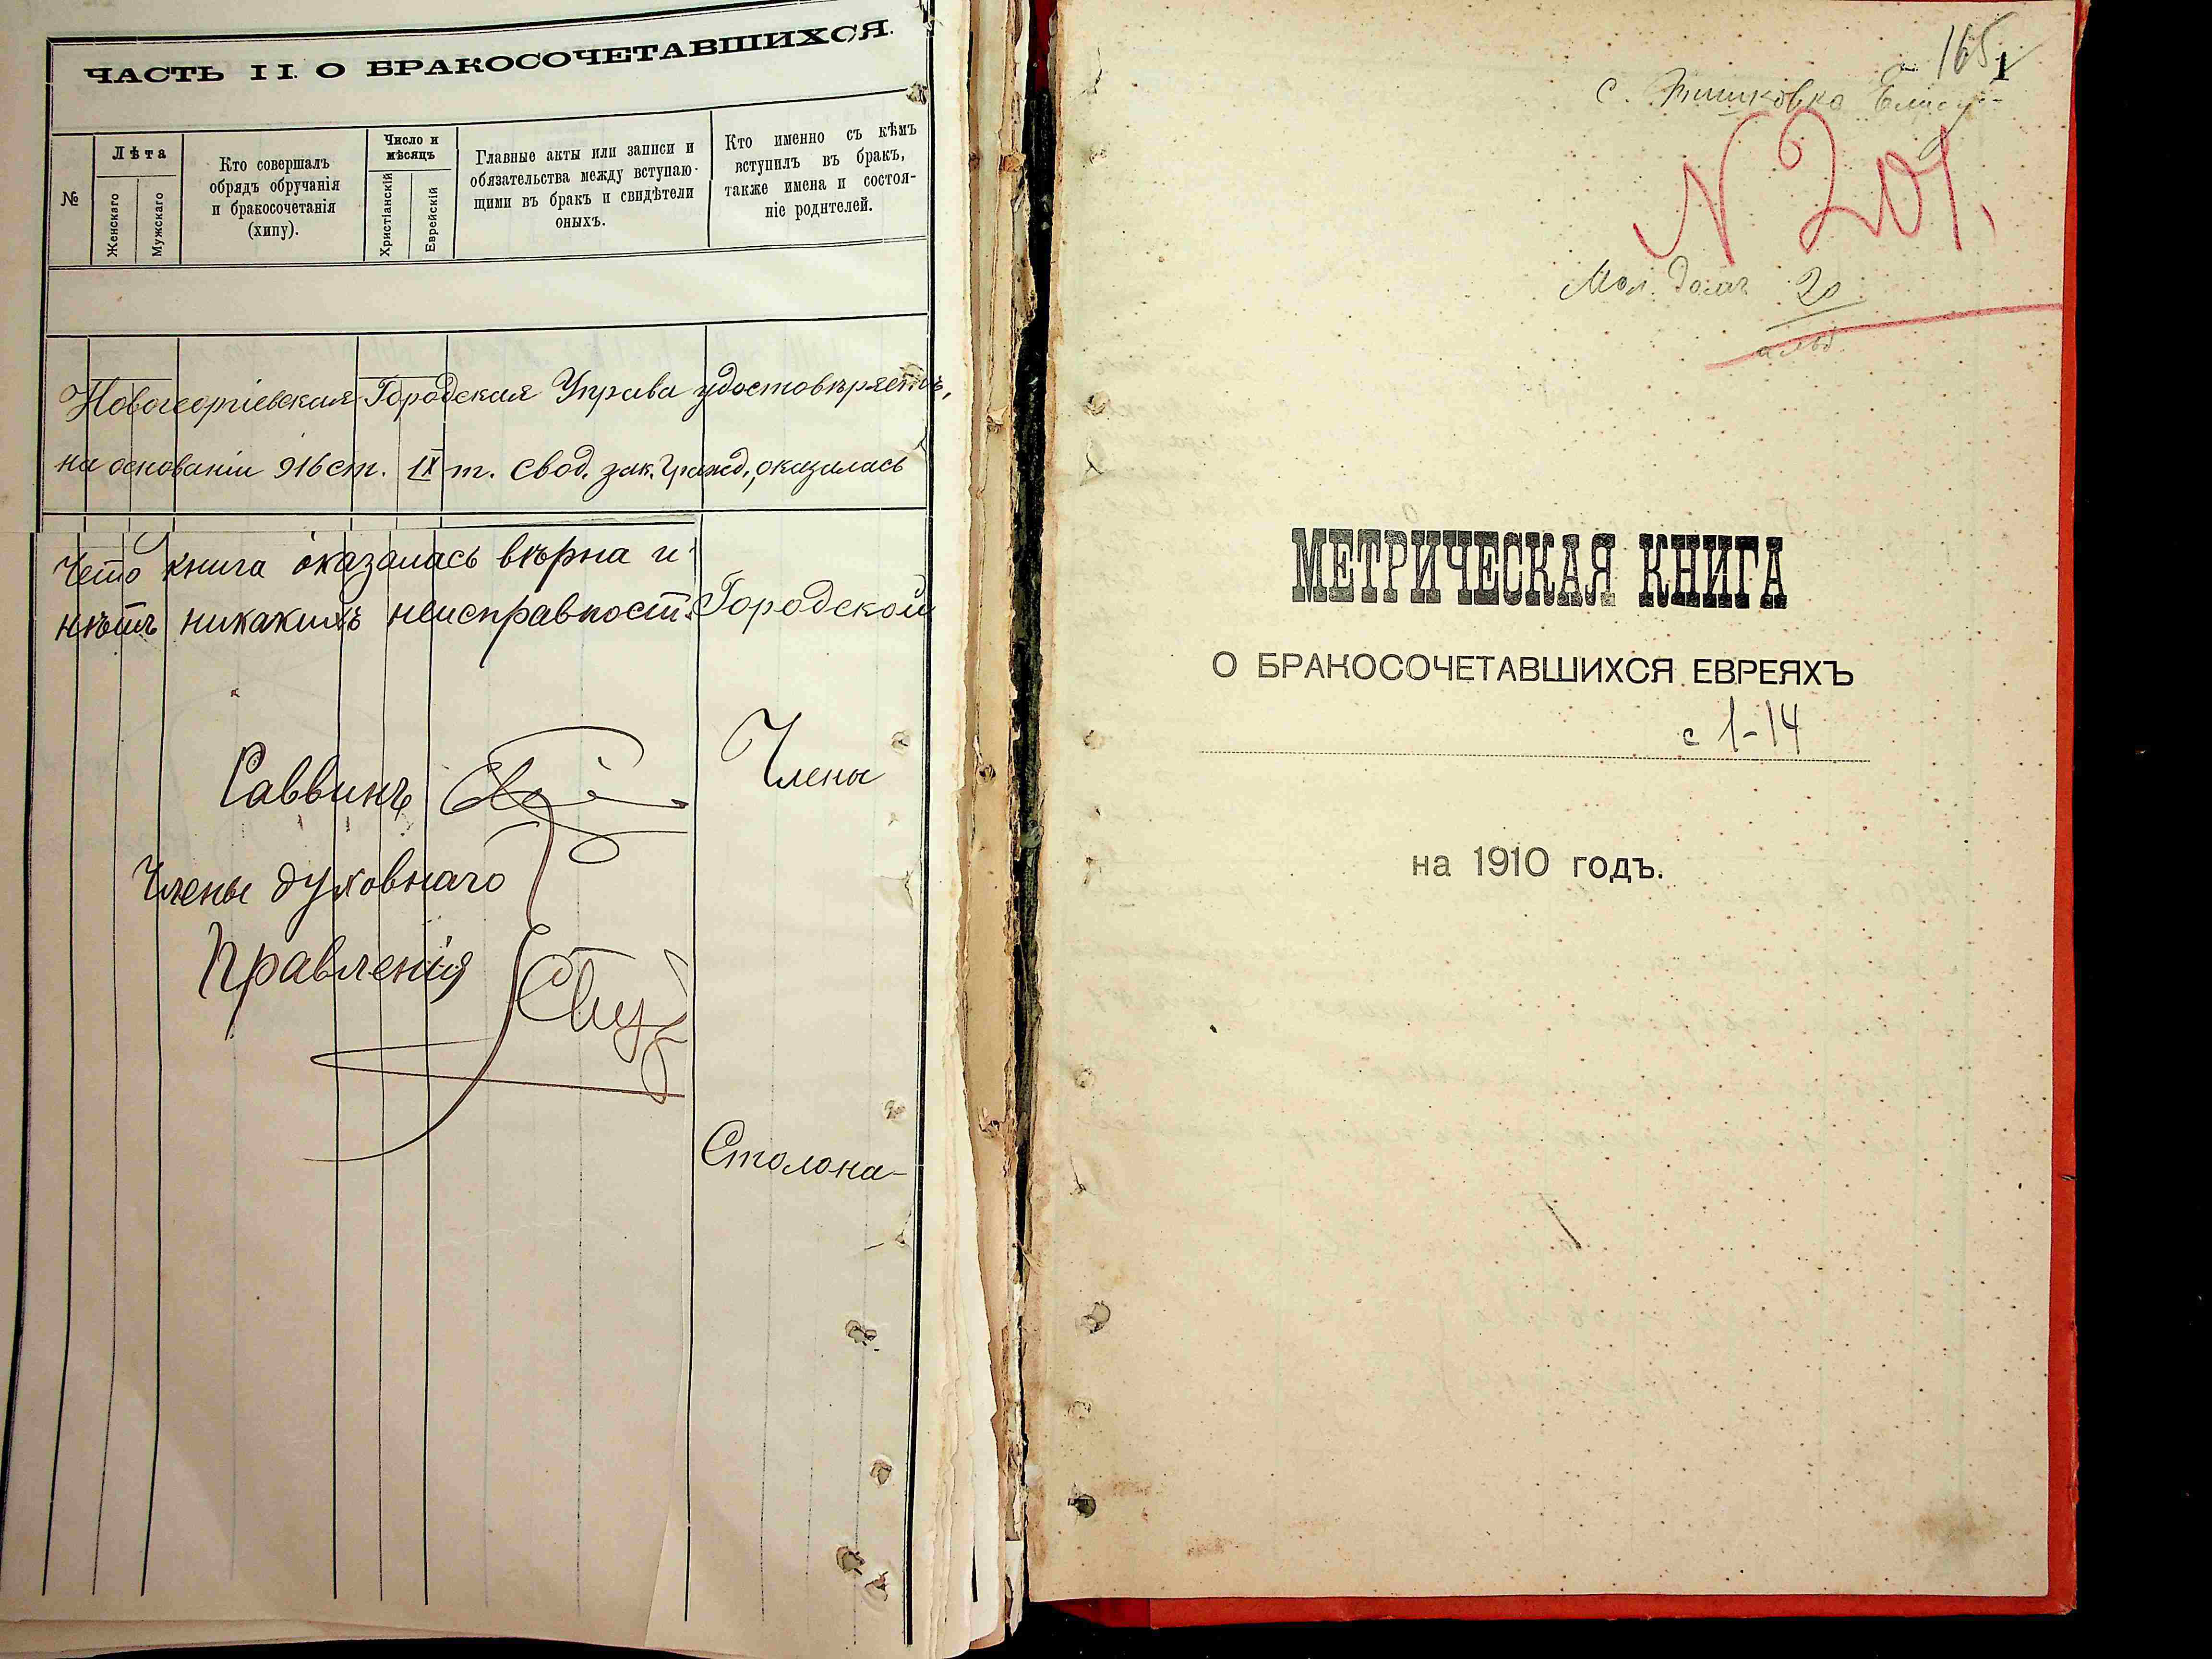 ЧАСТЬ II. О БРАКОСОЧЕТАВШИХСЯ.
№
Лѣта
Женскаго
Мужскаго
Кто совершалъ
обрядъ обручанія
и бракосочетанія
(хипу).
Число и
мѣсяцъ
Христіанскій
Еврейскій
Главные акты или записи и
обязательства между вступаю-
щими въ бракъ и свидѣтели
оныхъ.
Кто именно съ кѣмъ
вступилъ въ бракъ,
также имена и состоя-
ніе родителей.
Новогеоргіевская Городская Управа удостовѣряетъ,
на основаніи 916 ст. IX т. свод. зак. гражд., оказалась
Что книга оказалась вѣрна и
нѣтъ никакихъ неисправност.
Городской
Раввинъ
Члены
Члены духовнаго
Правленія
Столона-
165
1
с.
N 201.
20
МЕТРИЧЕСКАЯ КНИГА
О БРАКОСОЧЕТАВШИХСЯ ЕВРЕЯХЪ
с 1-14
на 1910 годъ.